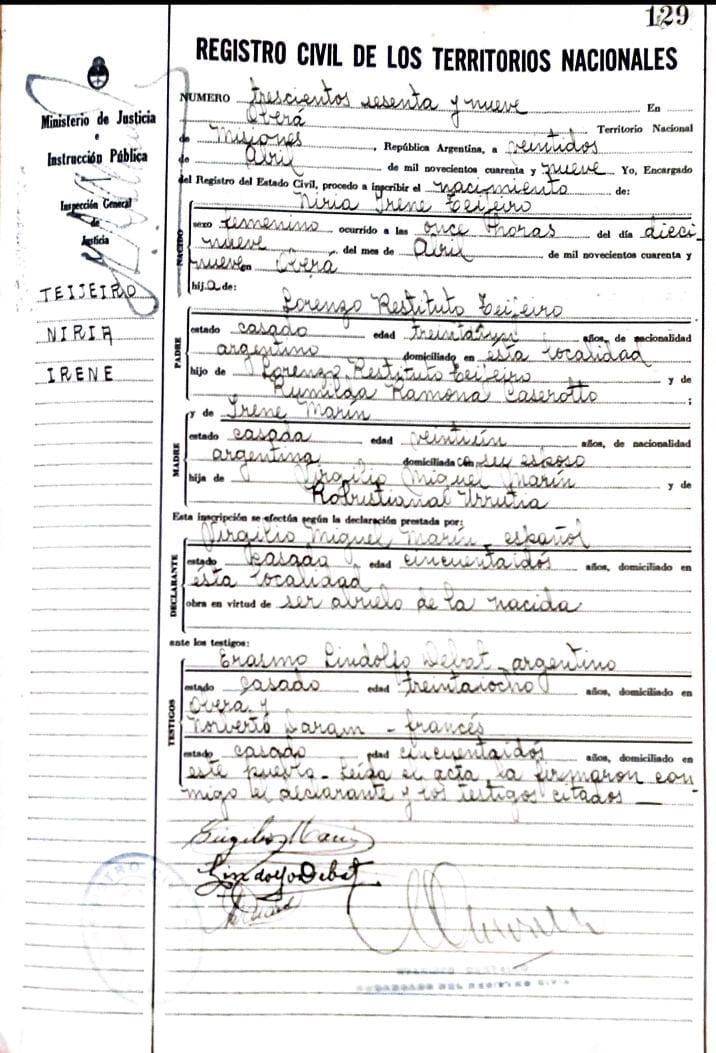 129
REGISTRO CIVIL DE LOS TERRITORIOS NACIONALES
Ministerio de Justicia
e
Instrucción Pública
Inspección General
de
Justicia
TEIJEIRO
NIRIA
IRENE
NUMERO trescientos sesenta y nueve En
Oberá Territorio Nacional
de Misiones, República Argentina, a veintidos
de Abril de mil novecientos cuarenta y nueve Yo, Encargado
del Registro del Estado Civil, procedo a inscribir el nacimiento de:
Niria Irene Teijeiro
NACIDO
sexo femenino ocurrido a las once horas del día dieci
nueve del mes de Abril de mil novecientos cuarenta y
nueve en Oberá
hija de:
Lorenzo Restituto Teijeiro
PADRE
estado casado edad treintaiun años, de nacionalidad
argentino domiciliado en esta localidad
hijo de Lorenzo Restituto Teijeiro y de
Rumilda Ramona Caserotto ;
y de Irene Marín
MADRE
estado casada edad veintiún años, de nacionalidad
argentina domiciliada con su esposo
hija de Virgilio Miguel Marín y de
Robustiana Urrutia
Esta inscripción se efectúa según la declaración prestada por:
Virgilio Miguel Marín - español
DECLARANTE
estado casado edad cincuentaidós años, domiciliado en
ésta localidad
obra en virtud de ser abuelo de la nacida
ante los testigos:
Erasmo Lindolfo Debat - argentino
TESTIGOS
estado casado edad treintaiocho años, domiciliado en
Oberá y
Norberto - francés
estado casado edad cincuentaidós años, domiciliado en
este pueblo - Leída el acta, la firmaron con
migo el declarante y los testigos citados
Lindolfo Debat
ENCARGADO DEL REGISTRO CIVIL